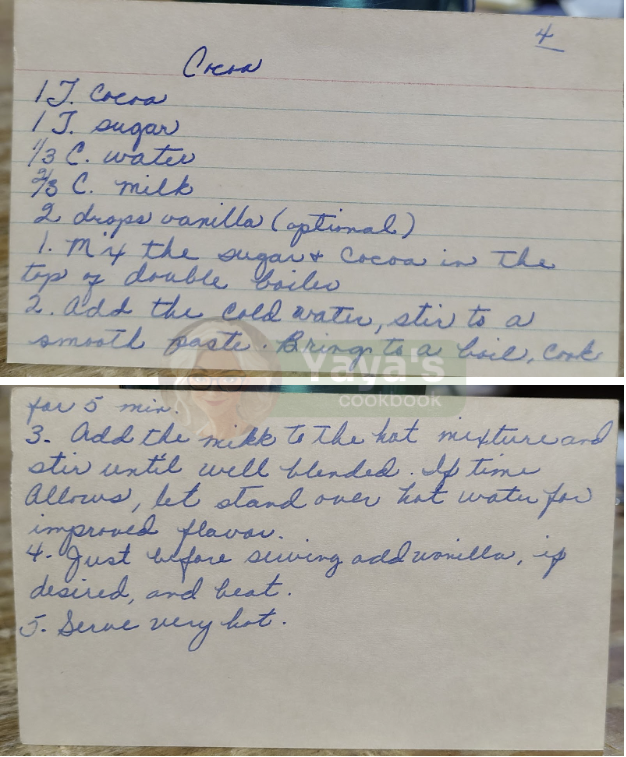 4
Cocoa
1 T. cocoa
1 T. sugar
1/3 C. water
2/3 C. milk
2 drops vanilla (optional)
1. Mix the sugar & Cocoa in the
top of double boiler
2. Add the cold water, stir to a
smooth paste. Bring to a boil, cook
Yaya's
cookbook
for 5 min.
3. Add the milk to the hot mixture and
stir until well blended. If time
allows, let stand over hot water for
improved flavor.
4. Just before serving add vanilla, if
desired, and beat.
5. Serve very hot.